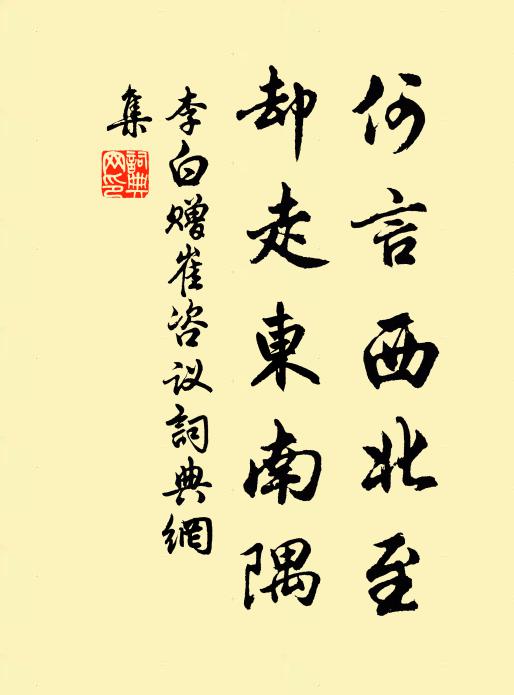 何言西北至
却走東南隅
李白赠崔咨议詞典網
集
詞典
网印